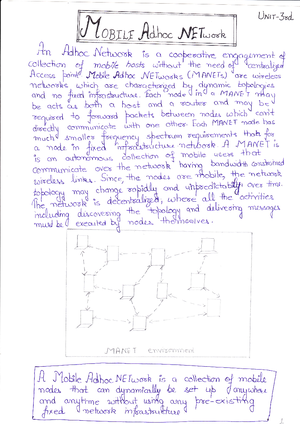 UNIT-3rd
MOBILE Adhoc NETwork
An Adhoc Network is a cooperative engagement of
collection of mobile hosts without the need of "centralized
Access point" Mobile Adhoc NETworks (MANETs) are wireless
networks which are characterized by dynamic topologies
and no fixed infrastructure. Each node in a MANET may
be acts as both a host and a router and may be
required to forward packets between nodes which can't
directly communicate with one other. Each MANET node has
much smaller frequency spectrum requirements that for
a node in fixed infrastructure network. A MANET is
is an autonomous collection of mobile users that
communicate over the network having bandwidth constrained
wireless links. Since, the nodes are mobile, the network
topology may change rapidly and unpredictably over time.
The network is decentralized, where all the activities
including discovering the topology and delivering messages
must be executed by nodes themselves.
MANET environment
A Mobile Adhoc NETwork is a collection of mobile
nodes that can dynamically be set up anywhere
and anytime without using any pre-existing
fixed network infrastructure